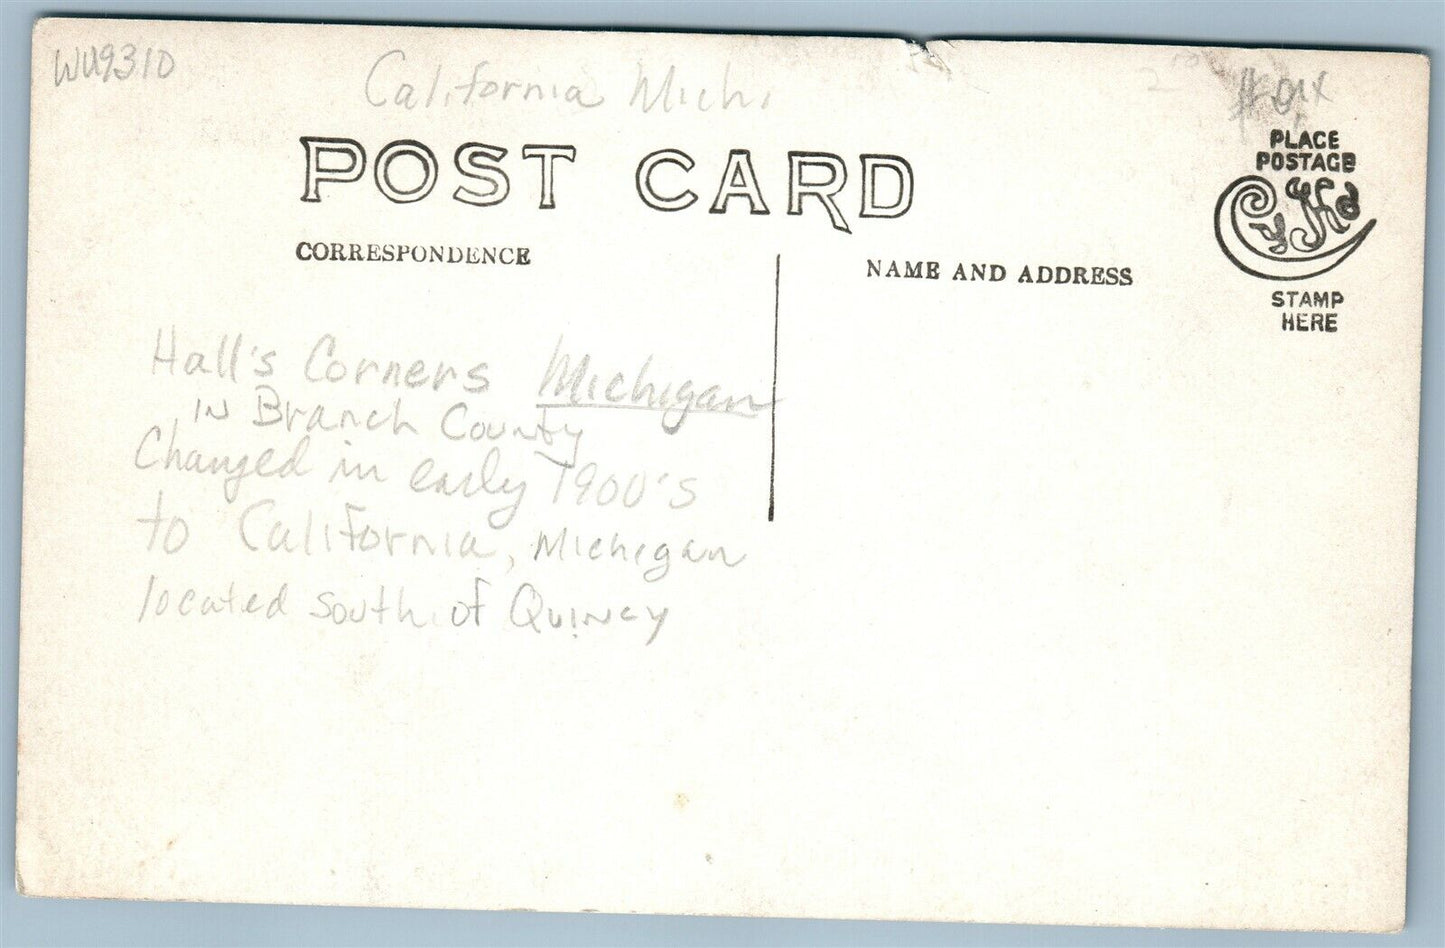 WU9310
California Mich.
POST CARD
PLACE
POSTAGE
STAMP
HERE
CORRESPONDENCE
NAME AND ADDRESS
Hall's Corners Michigan
IN Branch County
Changed in early 1900's
to California, Michigan
located south of Quincy